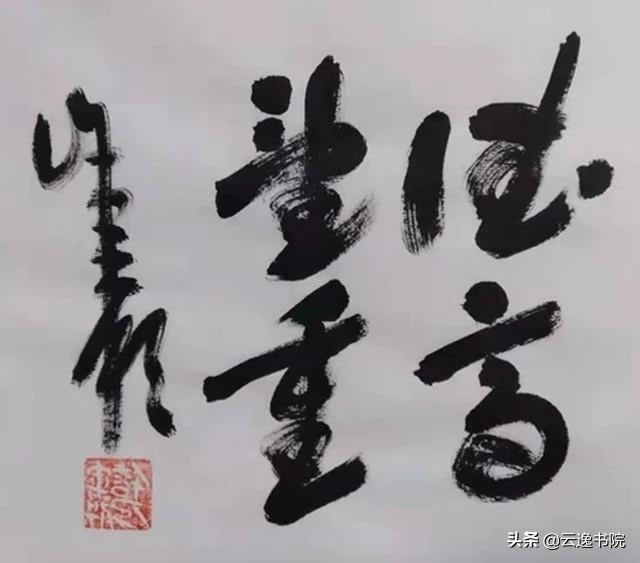 德高
望重
头条 @云逸书院